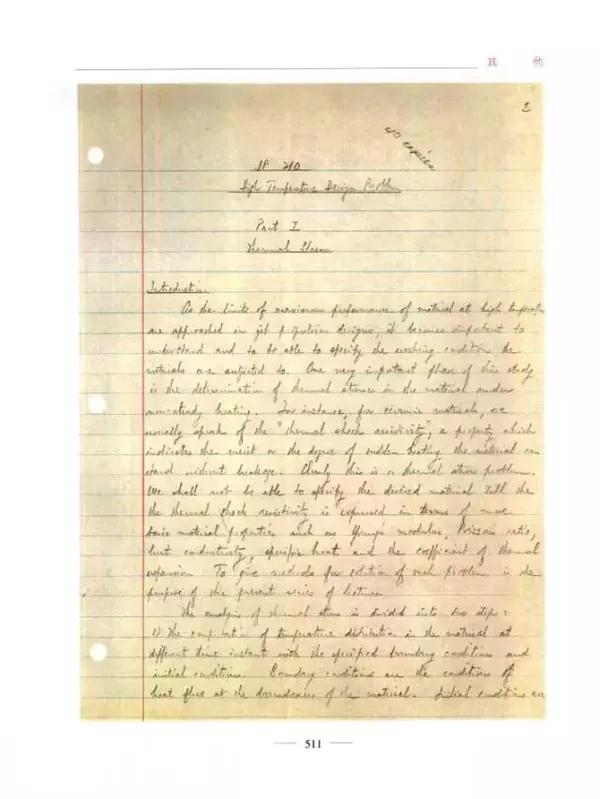 其 他
1
40 copies
JP 210
High Temperature Design Problem
Part I
Thermal Stress
Introduction
As the limits of maximum performance of material at high temperature
are approached in jet propulsion designs, it becomes important to
understand and to be able to specify the working conditions the
materials are subjected to. One very important phase of this study
is the determination of thermal stress in the material under
nonsteady heating. For instance, for ceramic materials, we
usually speak of the "thermal shock resistivity", a property which
indicates the merit or the degree of sudden heating the material can
stand without breakage. Clearly this is a thermal stress problem.
We shall not be able to specify the desired material till the
the thermal shock resistivity is expressed in terms of more
basic material properties such as Young's modulus, Poisson's ratio,
heat conductivity, specific heat, and the coefficient of thermal
expansion. To give methods for solution of such problem is the
purpose of the present series of lectures.
The analysis of thermal stress is divided into two steps:
1) The computation of temperature distribution in the material at
different time instant with the specified boundary conditions and
initial conditions. Boundary conditions are the conditions of
heat flux at the boundaries of the material. Initial conditions are
511